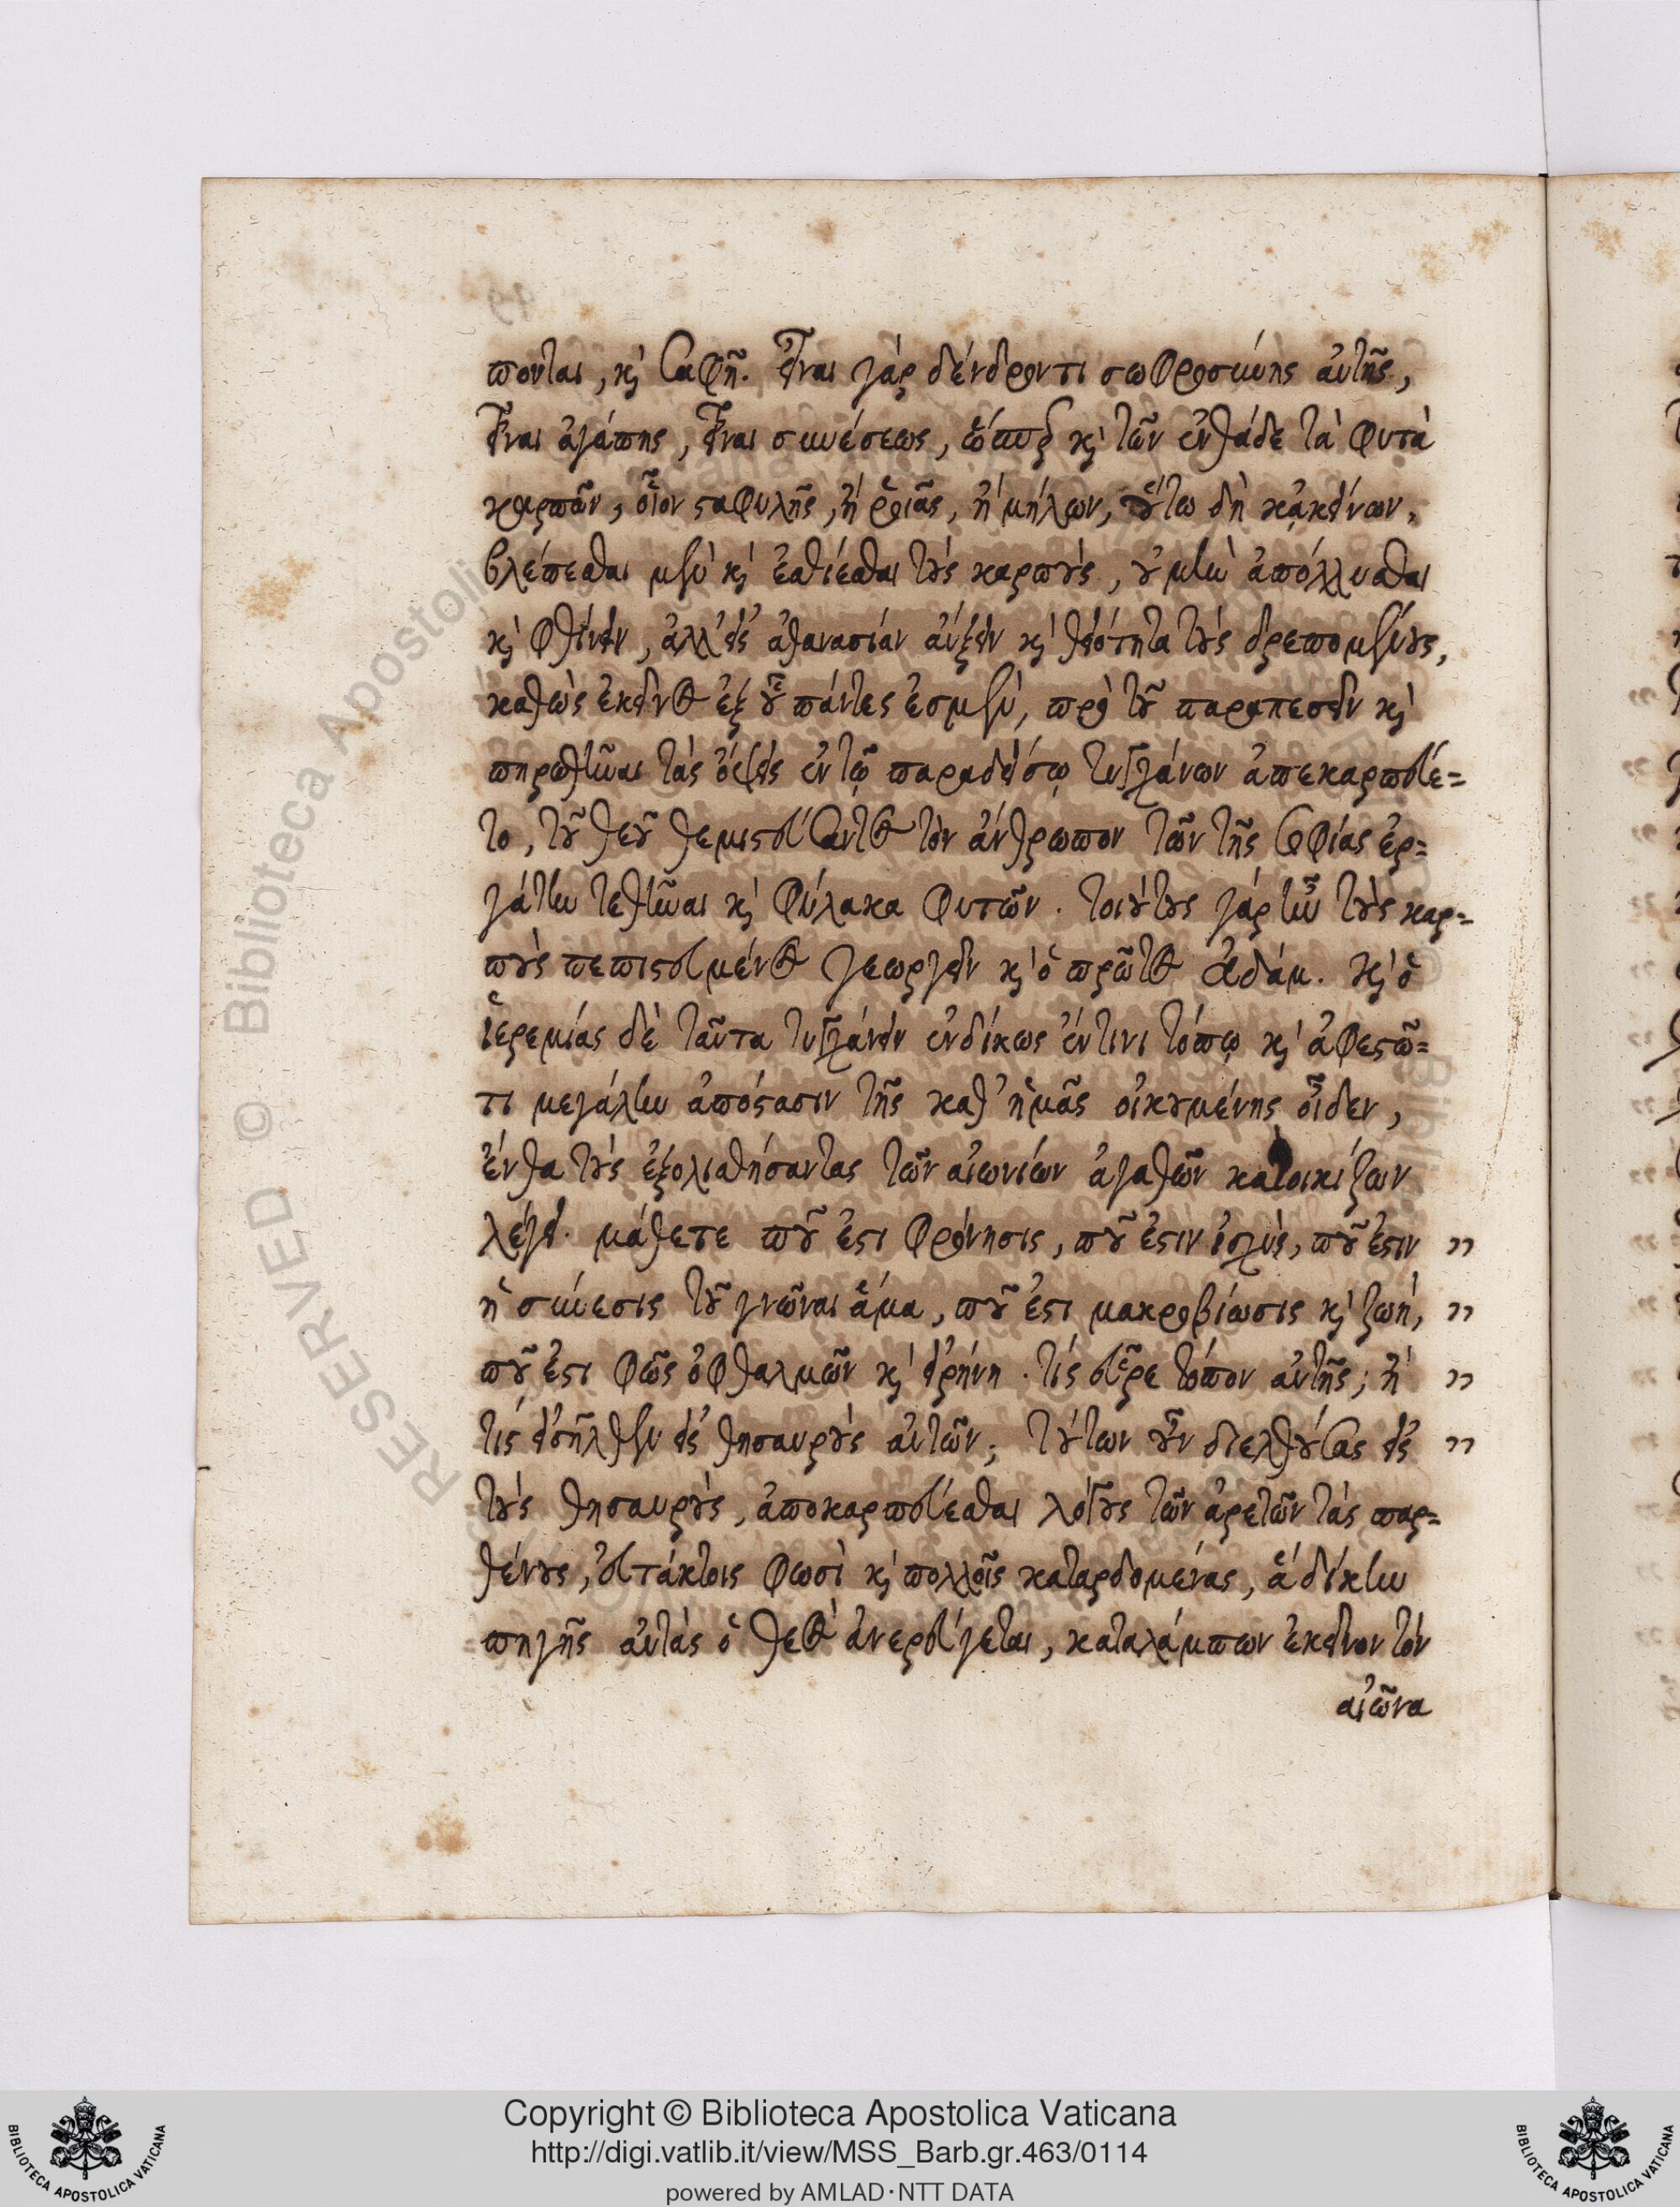 πονται, κ̀ σαφῆ. εἶναι γὰρ δένδρον τι σωφροσύνης αὐτῆς,
εἶναι ἀγάπης, εἶναι συνέσεως, ὥσπερ κ̀ τῶν ἐνθάδε τὰ φυτὰ
καρπῶν, οἷον σταφυλῆς, ἢ ῥοιᾶς, ἢ μήλων, οὕτω δὴ κᾀκείνων,
βλέπεσθαι μὲν κ̀ ἐσθίεσθαι τοὺς καρποὺς, οὐ μὴν ἀπόλλυσθαι
κ̀ φθίνειν, ἀλλ' εἰς ἀθανασίαν αὔξειν κ̀ θεότητα τοὺς δρεπομένους,
καθὼς ἐκεῖνος ἐξ οὗ πάντες ἐσμὲν, πρὸ τοῦ παραπεσεῖν κ̀
πηρωθῆναι τὰς ὄψεις ἐν τῷ παραδείσῳ τυγχάνων ἀπεκαρπεύε=
το, τοῦ θεοῦ θεμιστεύσαντος τὸν ἄνθρωπον τῶν τῆς σοφίας ἐρ=
γάτην τεθῆναι κ̀ φύλακα φυτῶν. τοιούτους γὰρ ἦν τοὺς καρ=
ποὺς πεπιστευμένος γεωργεῖν κ̀ ὁ πρῶτος Ἀδάμ. κ̀ ὁ
ἱερεμίας δὲ ταῦτα τυγχάνειν ἐνδίκως ἔν τινι τόπῳ κ̀ ἀφεστῶ=
τι μεγάλην ἀπόστασιν τῆς καθ' ἡμᾶς οἰκουμένης οἶδεν,
ἔνθα τοὺς ἐξολισθήσαντας τῶν αἰωνίων ἀγαθῶν κατοικίζων
λέγει. μάθετε ποῦ ἐστι φρόνησις, ποῦ ἐστιν ἰσχὺς, ποῦ ἐστιν ,,
ἡ σύνεσις τοῦ γνῶναι ἅμα, ποῦ ἐστι μακροβίωσις κ̀ ζωὴ, ,,
ποῦ ἐστι φῶς ὀφθαλμῶν κ̀ εἰρήνη. τίς εὗρε τόπον αὐτῆς; ἢ ,,
τίς εἰσῆλθεν εἰς θησαυροὺς αὐτῶν; τούτων οὖν διελθούσας εἰς ,,
τοὺς θησαυροὺς, ἀποκαρπεύεσθαι λόγους τῶν ἀρετῶν τὰς παρ=
θένους, εὐτάκτοις φωσὶ κ̀ πολλοῖς καταρδομένας, ἃ δίκην
πηγῆς αὐτὰς ὁ θεὸς ἀνερεύγεται, καταλάμπων ἐκεῖνον τὸν
αἰῶνα
Copyright © Biblioteca Apostolica Vaticana
http://digi.vatlib.it/view/MSS_Barb.gr.463/0114
powered by AMLAD·NTT DATA